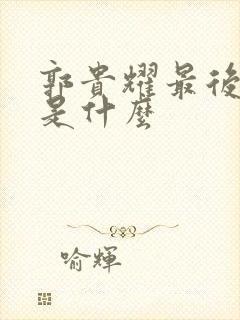 郭貴耀最後
是什麼
喻輝